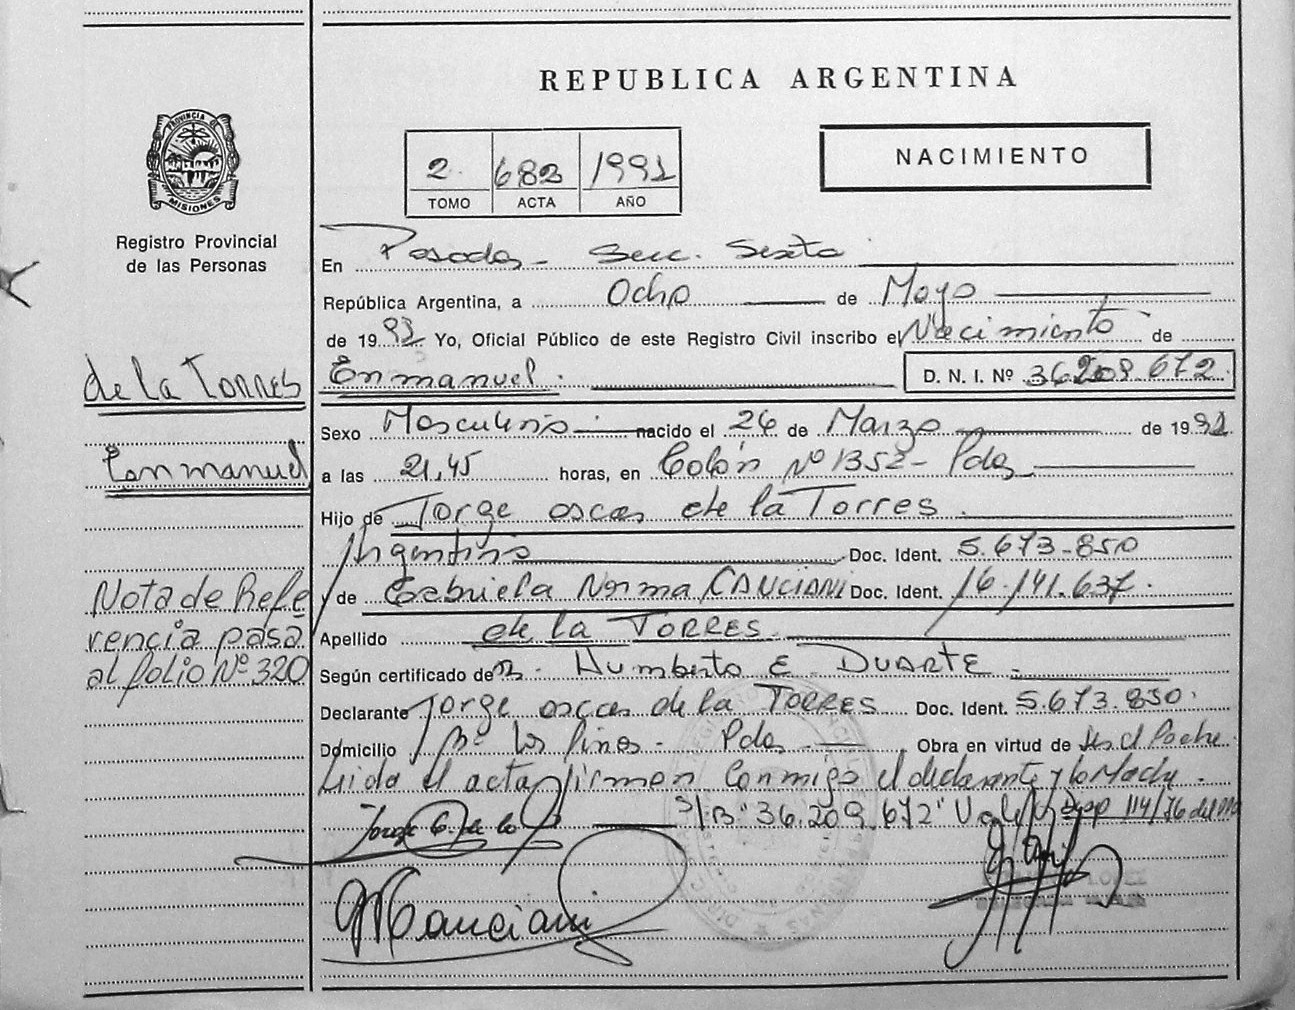 REPUBLICA ARGENTINA
PROVINCIA DE
MISIONES
Registro Provincial
de las Personas
2 682 1991
TOMO ACTA AÑO
NACIMIENTO
En Posadas - Secc. Sexta
República Argentina, a Ocho de Mayo
de 1991 Yo, Oficial Público de este Registro Civil inscribo el Nacimiento de
de la TORRES
Enmanuel
D. N. I. Nº 36.209.672
Sexo Masculino nacido el 26 de Marzo de 1991
Enmanuel
a las 21,45 horas, en Colón Nº 1352 - Pdas
Hijo de Jorge oscar de la Torres
Argentino Doc. Ident. 5.673.850
y de Gabriela Norma CANCIANI Doc. Ident. 16.141.637
Nota de Refe
rencia pasa
al folio Nº 320
Apellido de la TORRES
Según certificado de Humberto E. DUARTE
Declarante Jorge oscar de la TORRES Doc. Ident. 5.673.850
Domicilio Bº los Pinos - Pdas Obra en virtud de Ser el Padre
Leida el acta firman conmigo el declarante y la Madre
S/B "36.209.672" Vale 114/76 del